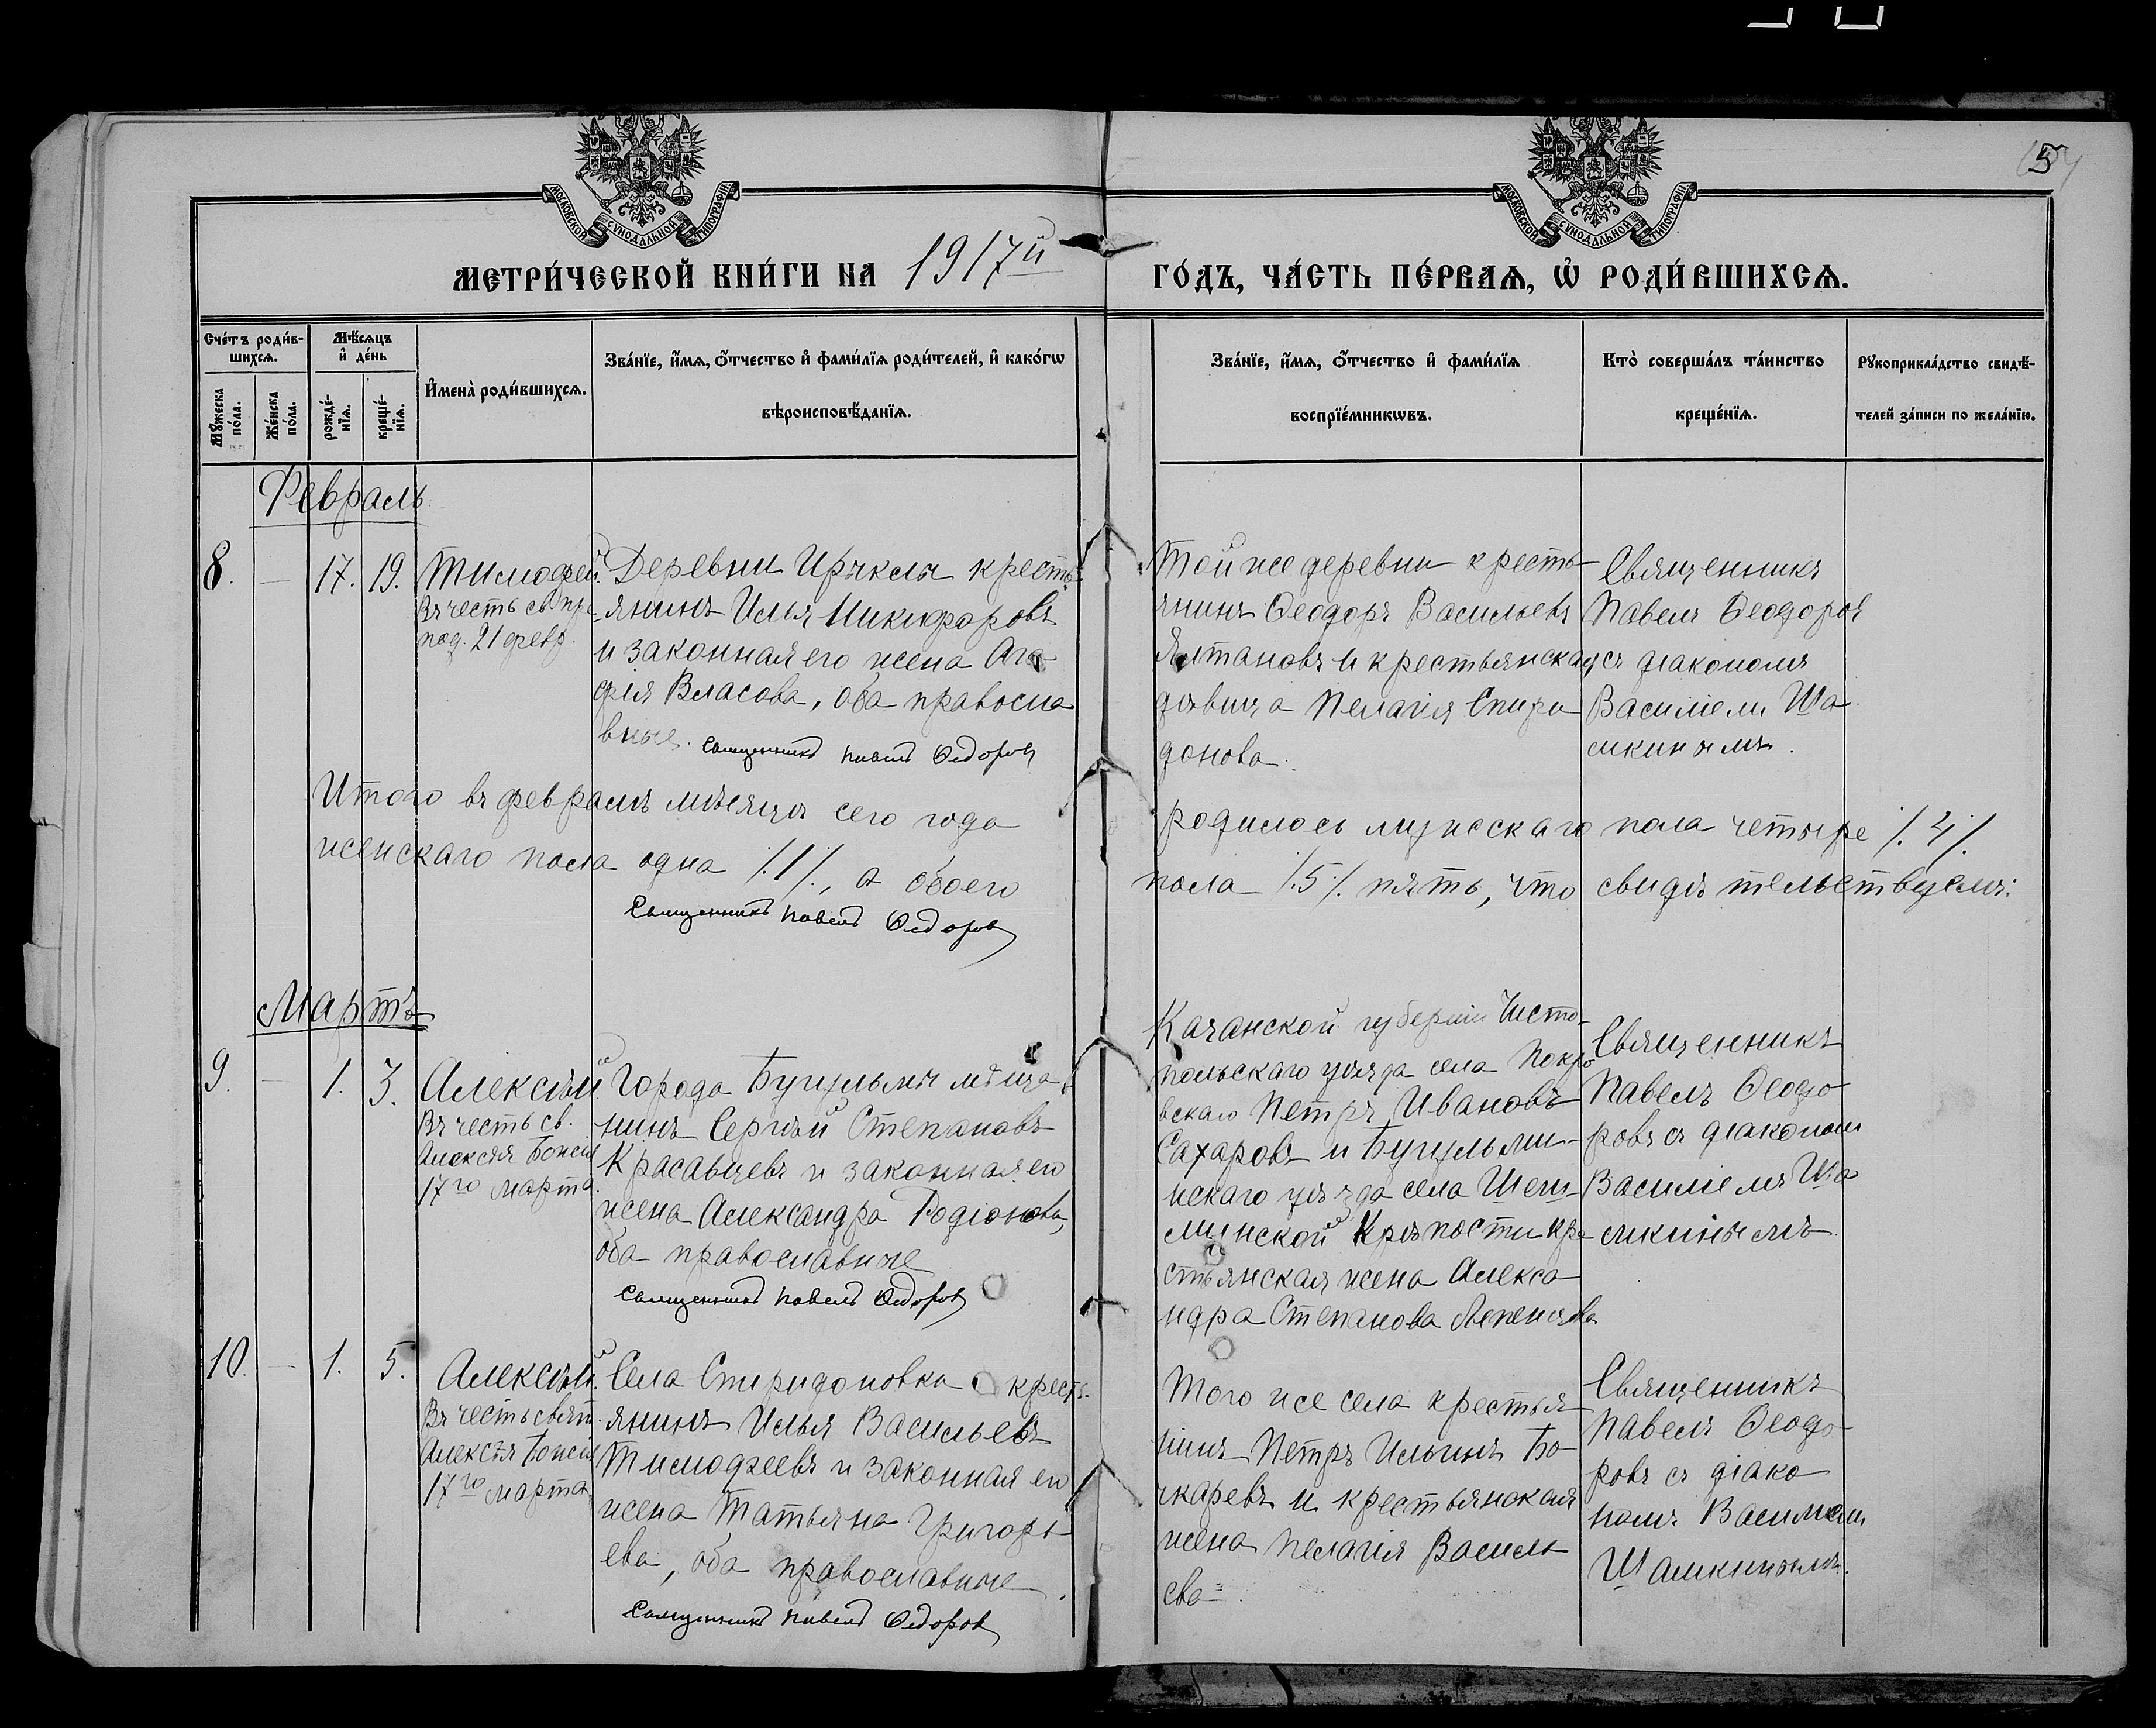 5
МОСКОВСКОЙ СУНОДАЛЬНОЙ ТИПОГРАФІИ
МОСКОВСКОЙ СУНОДАЛЬНОЙ ТИПОГРАФІИ
МЕТРИ́ЧЕСКОЙ КНИ́ГИ НА 1917й ГО́ДЪ, ЧА́СТЬ ПЕ́РВАЯ, Ѡ҆ РОДИ́ВШИХСЯ.
Сче́тъ роди́в-
шихсѧ.
Мꙋ́жеска
по́ла.
Же́нска
по́ла.
Мѣ́сѧцъ
и҆ де́нь
рожде́-
нїѧ.
креще́-
нїѧ.
И҆мена̀ роди́вшихсѧ.
Зва́нїе, и҆́мѧ, ѻ҆́тчество и҆ фами́лїѧ роди́телей, и҆ како́гѡ
вѣроисповѣ́данїѧ.
Зва́нїе, и҆́мѧ, ѻ҆́тчество и҆ фами́лїѧ
воспрїе́мникѡвъ.
Кто̀ соверша́лъ та́инство
креще́нїѧ.
Рꙋкоприкла́дство свидѣ́-
телей за́писи по жела́нїю.
Февраль
8. — 17. 19. Тимофей.
Въ честь св. пр
под. 21 февр.
Деревни кресть-
янинъ Илья Никифоровъ
и законная его жена Ага
фія Власова, оба правосла
вные.
Священникъ Павелъ Ѳедоров
Той же деревни кресть-
янинъ Ѳеодоръ Васильевъ
Ялтановъ и крестьянская
дѣвица Пелагія Спири
донова.
Священникъ
Павелъ Ѳеодоровъ
съ діакономъ
Василіемъ Ша
мкинымъ.
Итого въ февралѣ мѣсяцѣ сего года родилось мужскаго пола четыре /.4/.
женскаго пола одна /.1/., а обоего пола /.5/. пять, что свидѣтельствуемъ:
Священникъ Павелъ Ѳедоров
Мартъ
9. — 1. 3. Алексѣй.
Въ честь св.
Алексѣя Божія
17го марта
Города Бугульмы мѣща
нинъ Сергѣй Степановъ
Красавцевъ и законная его
жена Александра Родіонова,
оба православные
Священникъ Павелъ Ѳедоров
Казанской губерніи Чисто-
польскаго уѣзда села Покро
вскаго Петръ Ивановъ
Сахаровъ и Бугульми-
нскаго уѣзда села Шеш-
минской Крѣпости кре
стьянская жена Алекса
ндра Степанова
Священникъ
Павелъ Ѳеодо
ровъ съ діакономъ
Василіемъ Ша
мкинымъ.
10. — 1. 5. Алексѣй.
Въ честь свят.
Алексѣя Божія
17го марта
Села Спиридоновки кресть-
янинъ Илья Васильевъ
Тимофеевъ и законная его
жена Татьяна Григорь
ева, оба православные.
Священникъ Павелъ Ѳедоров
Того же села крестья-
нинъ Петръ Ильинъ Бо-
чкаревъ и крестьянская
жена Пелагія Василь
ева.
Священникъ
Павелъ Ѳеодо-
ровъ съ діако
номъ Василіемъ
Шамкинымъ.